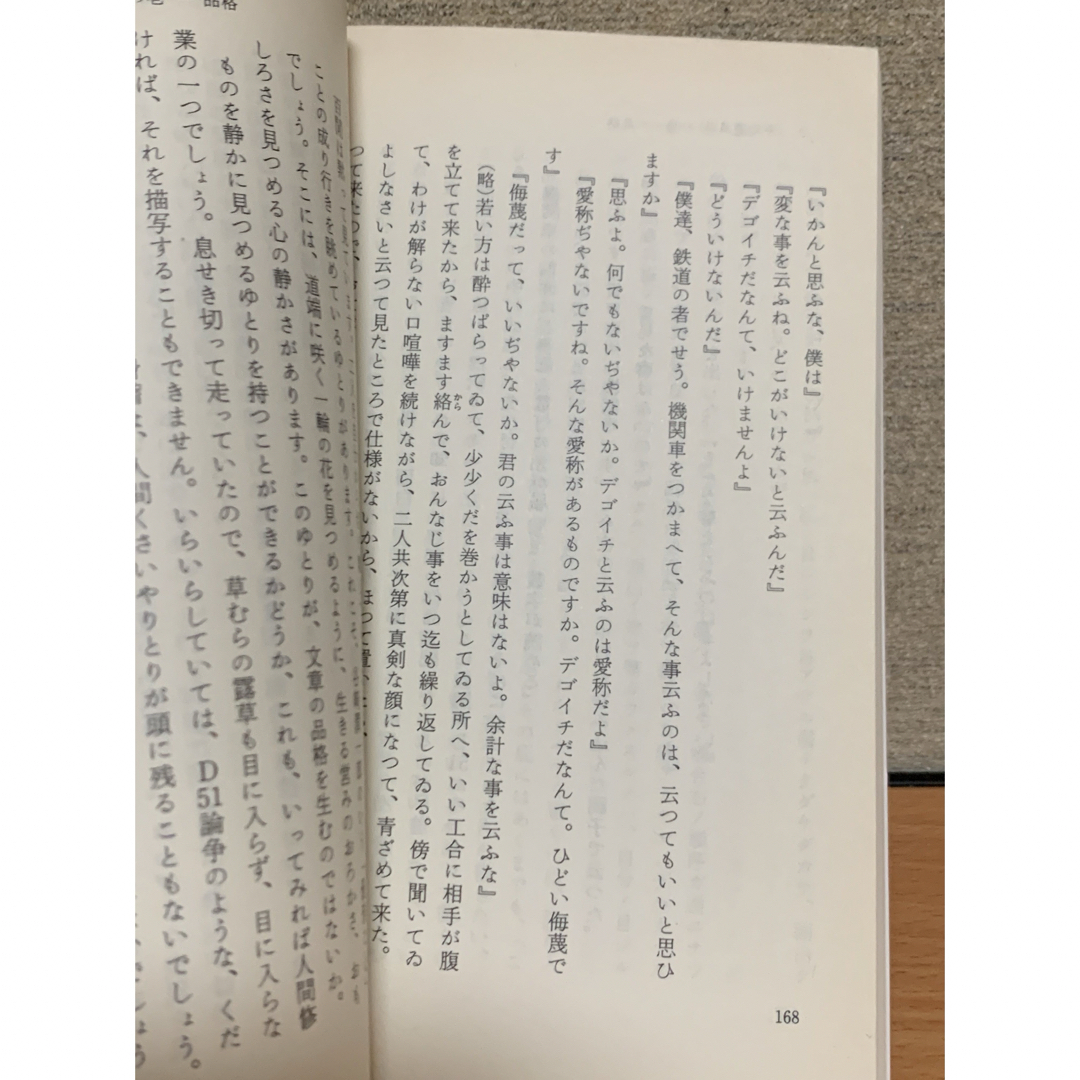 『いかんと思ふな、僕は』
『変な事を云ふね。どこがいけないと云ふんだ』
『デゴイチだなんて、いけませんよ』
『どういけないんだ』
『僕達、鉄道の者でせう。機関車をつかまへて、そんな事云ふのは、云つてもいいと思ひ
ますか』
『思ふよ。何でもないぢやないか。デゴイチと云ふのは愛称だよ』
『愛称ぢやないですね。そんな愛称があるものですか。デゴイチだなんて。ひどい侮蔑で
す』
『侮蔑だって、いいぢやないか。君の云ふ事は意味はないよ。余計な事を云ふな』
(略)若い方は酔つぱらってゐて、少少くだを巻かうとしてゐる所へ、いい工合に相手が腹
を立てて来たから、ますます絡んで、おんなじ事をいつ迄も繰り返してゐる。傍で聞いてゐ
から
て、わけが解らない口喧嘩を続けながら、二人共次第に真剣な顔になつて、青ざめて来た。
よしなさいと云つて見たところで仕様がないから、ほつて置
つて来たので、
168
品格
ことの成り行きを眺めているゆとりがあります。これこそ、
でしょう。そこには、道端に咲く一輪の花を見つめるように、生きる営みのおろかさ、おも
しろさを見つめる心の静かさがあります。このゆとりが、文章の品格を生むのではないか。
ものを静かに見つめるゆとりを持つことができるかどうか、これも、いってみれば人間修
業の一つでしょう。息せき切って走っていたので、草むらの露草も目に入らず、目に入らな
ければ、それを描写することもできません。いらいらしていては、D51論争のような、くだ
人間くさいやりとりが頭に残ることもないでしょう。